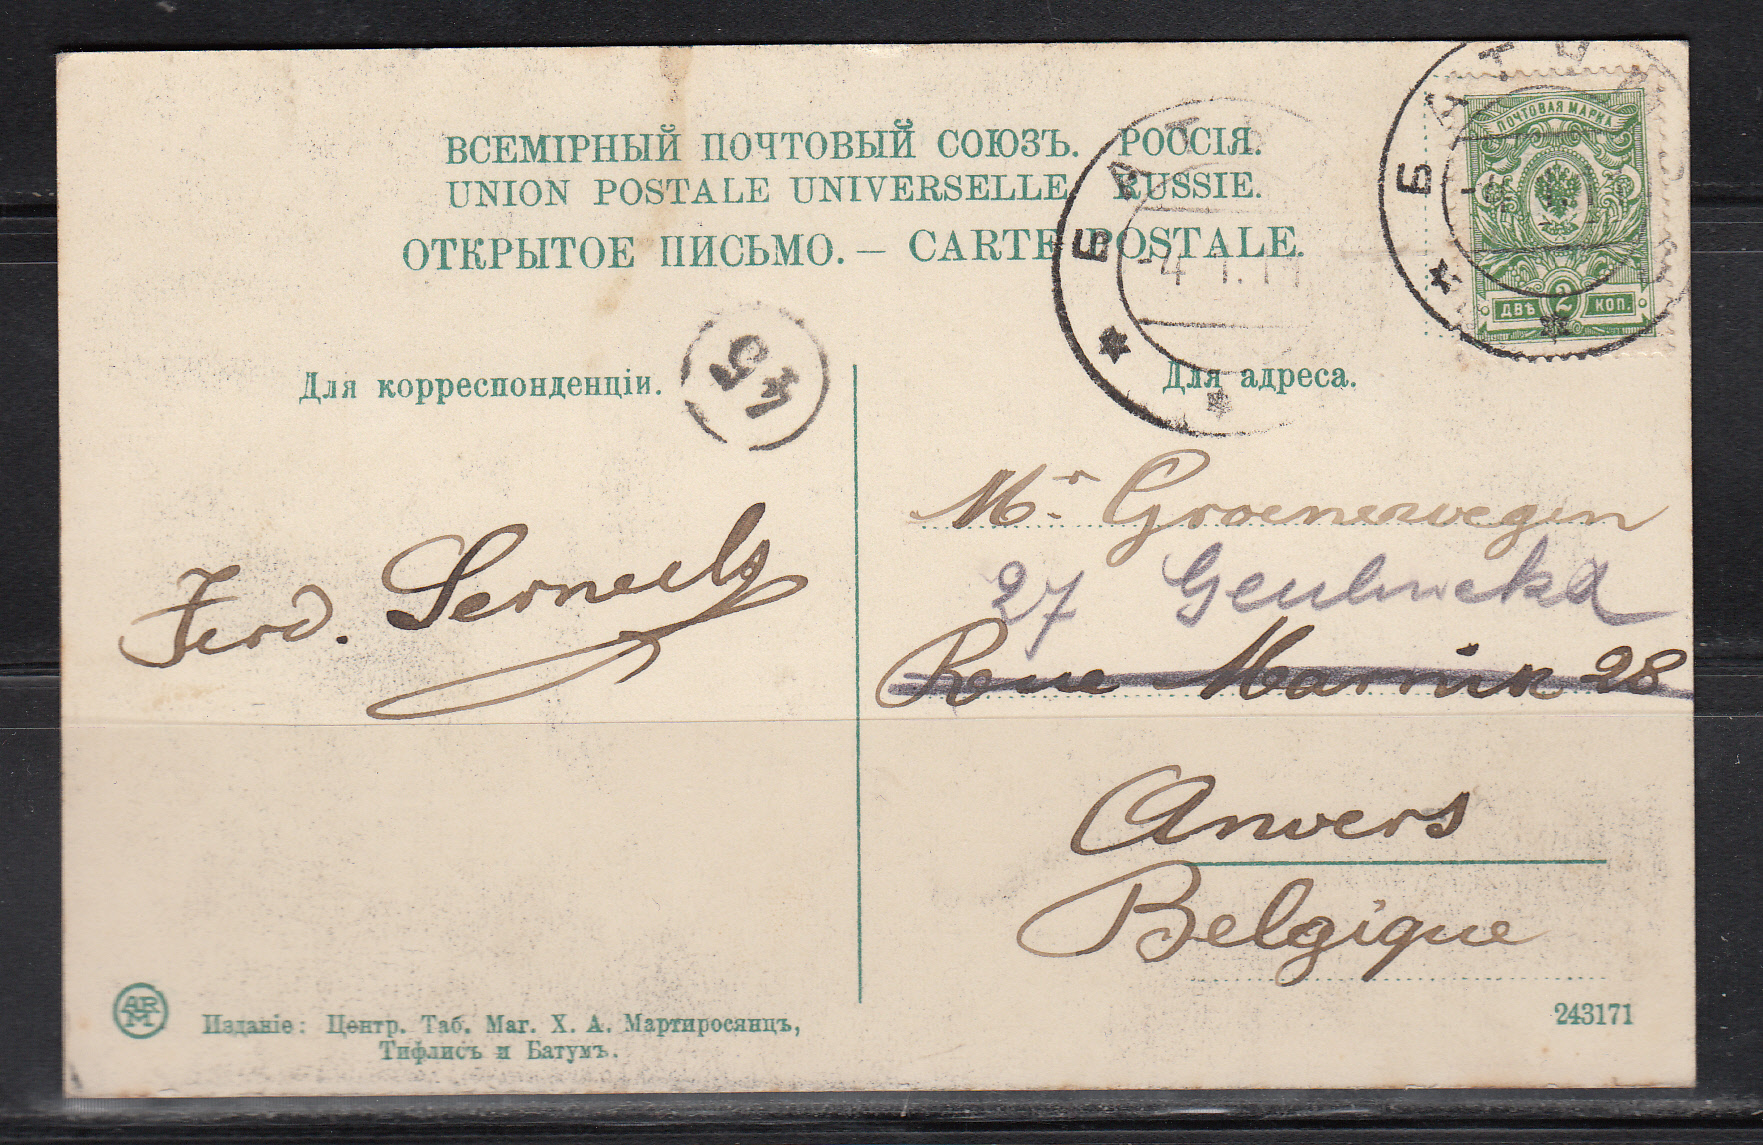 ВСЕМІРНЫЙ ПОЧТОВЫЙ СОЮЗЪ. РОССІЯ.
UNION POSTALE UNIVERSELLE. RUSSIE.
ОТКРЫТОЕ ПИСЬМО. — CARTE POSTALE.
ПОЧТОВАЯ МАРКА
2
ДВѢ КОП.
БАТУМ
БАТ
-4.1.11
45
Для корреспонденціи.
Для адреса.
Ferd.
Mr. Groenenwegen
27
Rue Marnix 28
Anvers
Belgique
ARM
Изданіе: Центр. Таб. Маг. Х. А. Мартиросянцъ,
Тифлисъ и Батумъ.
243171